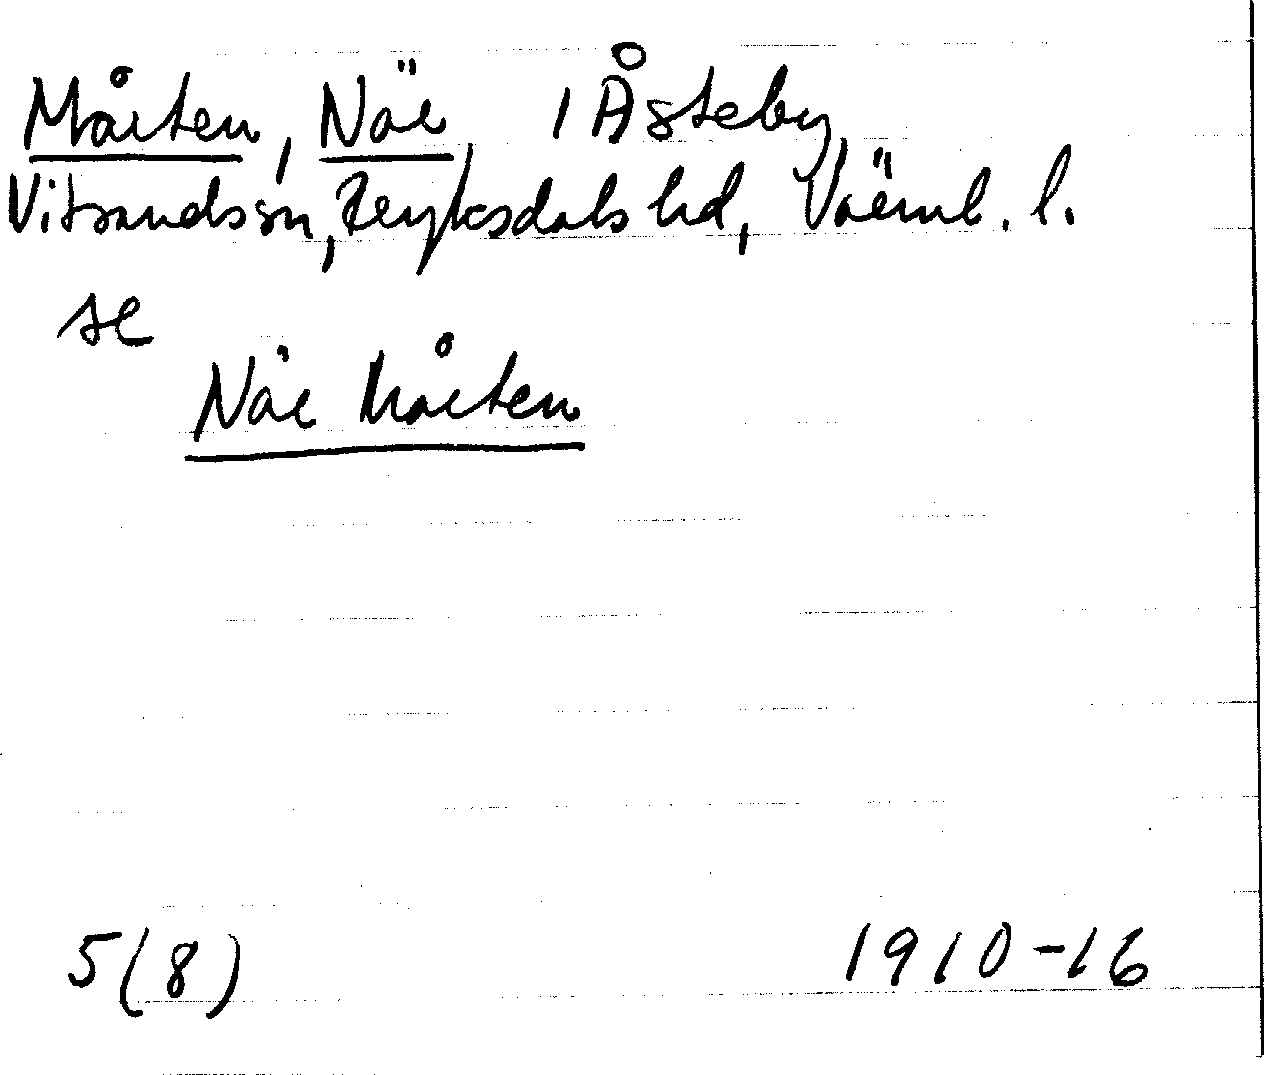 Mårten, När i Åsteby,
Vitsands sn, Fryksdals hd, Värml. l.
se
När Mårten
5(8) 1910-16